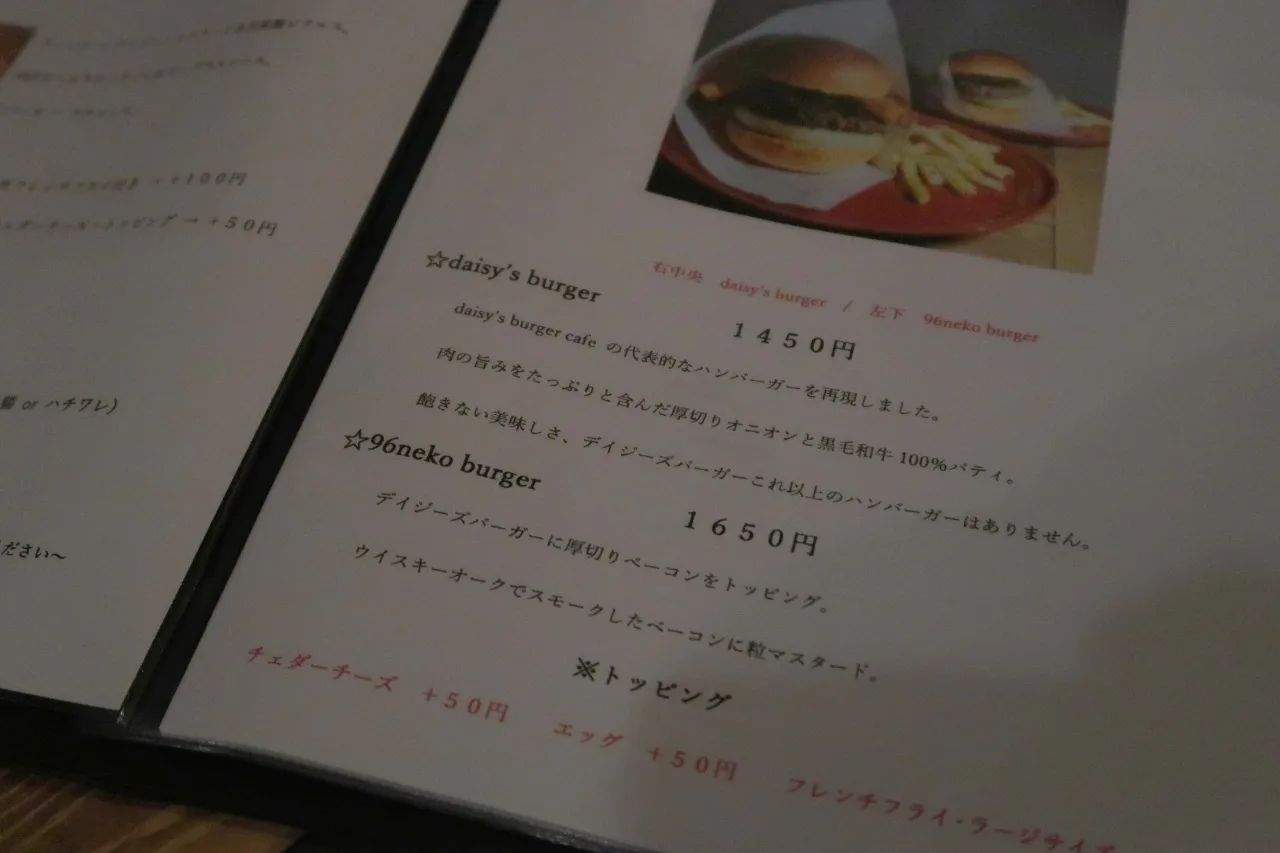 ＋１００円
ェダーチーズ・トッピング → ＋５０円
猫 or ハチワレ）
ださい〜
右中央　daisy's burger　/　左下　96neko burger
☆daisy's burger
１４５０円
daisy's burger cafe の代表的なハンバーガーを再現しました。
肉の旨みをたっぷりと含んだ厚切りオニオンと黒毛和牛 100%パティ。
飽きない美味しさ、デイジーズバーガーこれ以上のハンバーガーはありません。
☆96neko burger
１６５０円
デイジーズバーガーに厚切りベーコンをトッピング。
ウイスキーオークでスモークしたベーコンに粒マスタード。
※トッピング
チェダーチーズ　＋５０円　エッグ　＋５０円　フレンチフライ・ラージサイズ